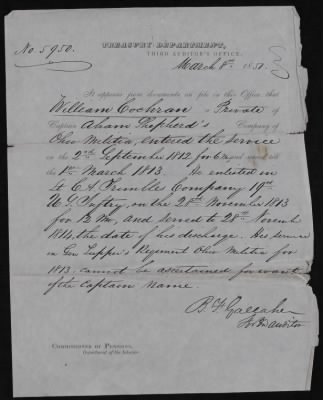 No. 5950.
TREASURY DEPARTMENT,
THIRD AUDITOR'S OFFICE,
March 8th 1851
It appears from documents on file in this Office that
William Cochran a Private of
Captain Aham Shepherd's Company of
Ohio Militia, entered the service
on the 2nd September 1812 for 6 and served until
the 1st March 1813. He enlisted in
Lt C A Trimbles Company 19th
U.S. Inftry, on the 28th November 1813
for 12 Mo, and served to 28th Novemb
1814, the date of his discharge. His service
in Gen Tupper's Regiment Ohio Militia for
1813 cannot be ascertained for want
of the Captain name.
B. F. Gallaher
for 3d Auditor
COMMISSIONER OF PENSIONS,
Department of the Interior